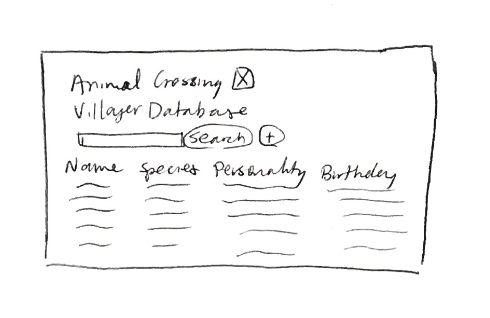 Animal Crossing
Villager Database
Search +
Name Species Personality Birthday